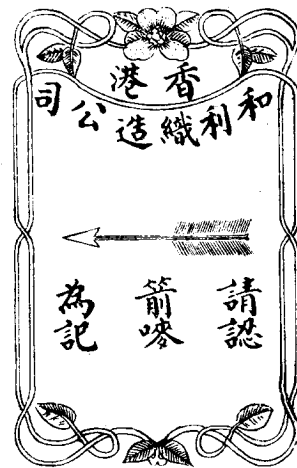 香港
和利織造公司
請認
箭嘜
為記